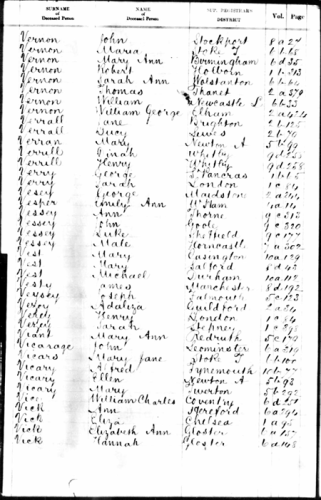 SURNAME NAME SUP. REGISTRARS
Deceased Person. Deceased Person. DISTRICT Vol. Page
Vernon John Stockport 8a
Vernon Maria Stoke T 6b 65
Vernon Mary Ann Birmingham 6d 35
Vernon Robert Holborn 1b 313
Vernon Sarah Ann Wolstanton 6b 64
Vernon Thomas Thanet 2a 374
Vernon William Newcastle L. 6b 33
Vernon William George Elham 2a 424
Verrall Jane Brighton 2b 125
Verrall Lucy Lewes 2b 76
Verran Mary Newton A 5b 99
Verrill Dinah Whitby 9d 258
Verrill Henry Whitby 9d 258
Verry George S. Pancras 1b 65
Verry Sarah London 1c 84
Vesey George Maidstone 2a 244
Vesper Emily Ann W. Ham 4a 14
Vessey Ann Thorne 9c 313
Vessey John Goole 9c 320
Vessey Luke Sheffield 9c 177
Vessey Male Horncastle 7a 302
Vest Mary Easington 10a 139
Vest Mary Salford 8d 43
Vest Michael Durham 10a
Vesty James Manchester 8d 192
Veysey Joseph Falmouth 5c 123
Adaliza Guildford 2a 34
Henry London 1c 64
Sarah Stepney 1c 291
Mary Ann Redruth 5c 179
Vicarage John Leominster 6a 319
Vicars Mary Jane Stoke T 6b 100
Vicary Alfred Tynemouth 10b 77
Vicary Ellen Newton A. 5b 93
Vicary Mary Tiverton 5b 293
Vice William Charles Coventry 6d 251
Vick Ann Hereford 6a 294
Vick Eliza Chelsea 1a 93
Vick Elizabeth Ann Gloster 6a
Vick Hannah Gloster 6a 148